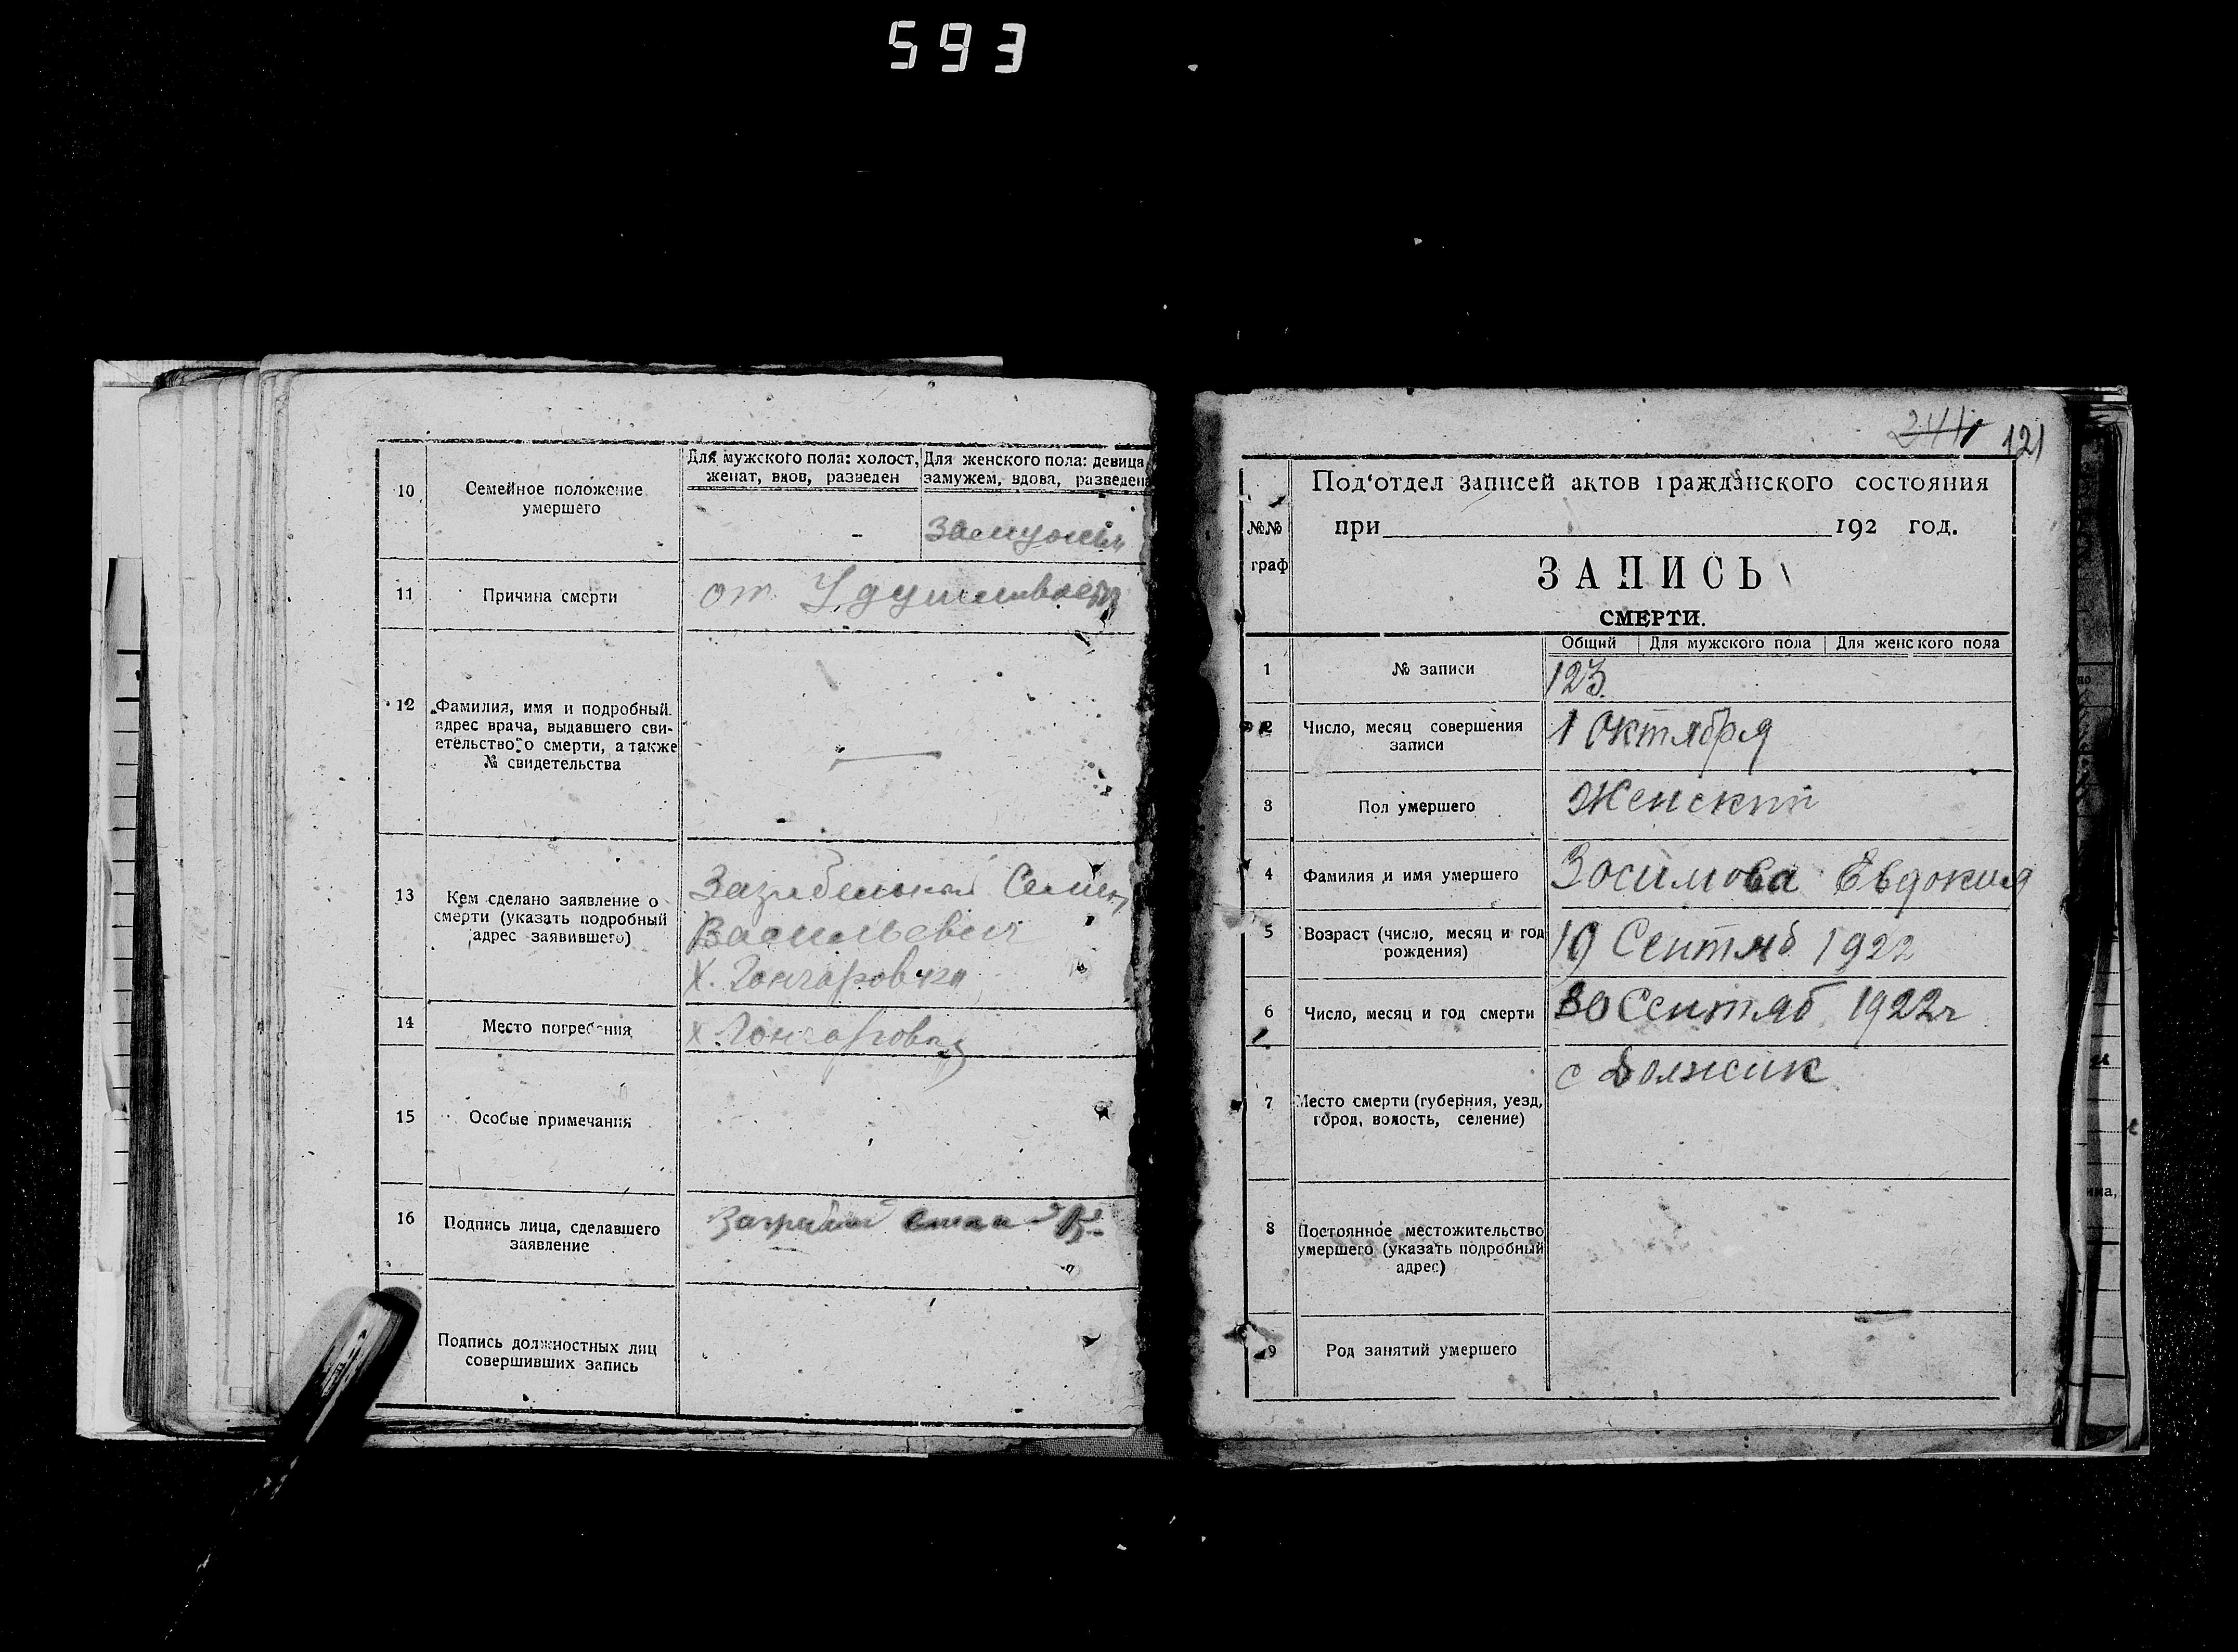 593
10
Семейное положение
умершего
Для мужского пола: холост,
женат, вдов, разведен
Для женского пола: девица
замужем, вдова, разведена
-
11
Причина смерти
от
12
Фамилия, имя и подробный
адрес врача, выдавшего сви-
етельство о смерти, а также
№ свидетельства
13
Кем сделано заявление о
смерти (указать подробный
адрес заявившего)
Васильевич
х. Гончаровка
14
Место погребения
х. Гончаровка
15
Особые примечания
16
Подпись лица, сделавшего
заявление
Подпись должностных лиц
совершивших запись
241
121
№№
граф
Под'отдел записей актов гражданского состояния
при 192 год.
ЗАПИСЬ
СМЕРТИ.
Общий
Для мужского пола
Для женского пола
1
№ записи
123
2
Число, месяц совершения
записи
1 Октября
3
Пол умершего
Женский
4
Фамилия и имя умершего
Зосимова Евдокия
5
Возраст (число, месяц и год
рождения)
19 Сентяб 1922
6
Число, месяц и год смерти
30 Сентяб 1922 г
7
Место смерти (губерния, уезд,
город, волость, селение)
с Должик
8
Постоянное местожительство
умершего (указать подробный
адрес)
9
Род занятий умершего